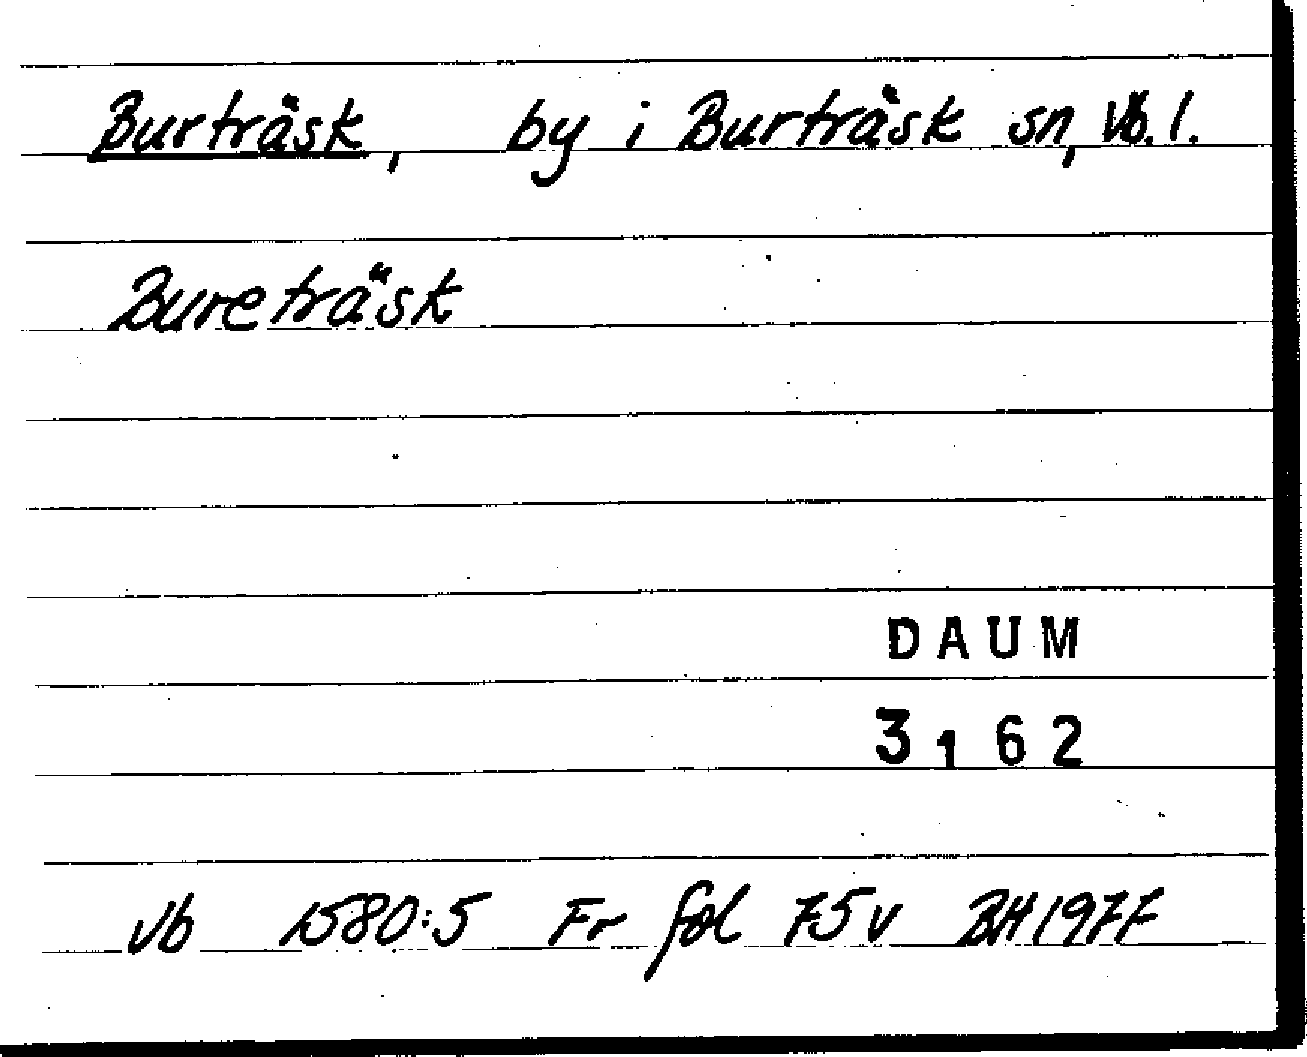 Burträsk, by i Burträsk sn, Vb. l.
Bureträsk
DAUM
3162
Vb 1580:5 Fr fol 75v BH 1977